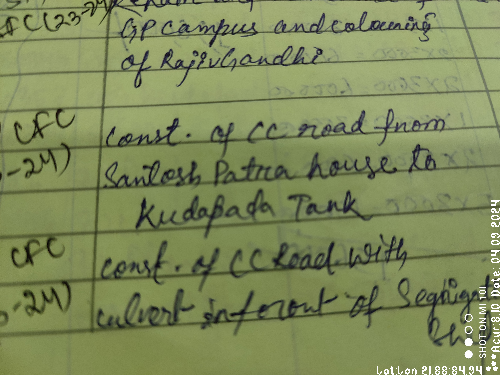 FC (23-24)
GP campus and colouring
of Rajiv Gandhi
CFC const. of CC road from
-24) Santosh Patra house to
Kudapada Tank
CFC const. of CC Road with
-24) culvert infront of
SHOT ON MI 10I
Date: 04.09.2024